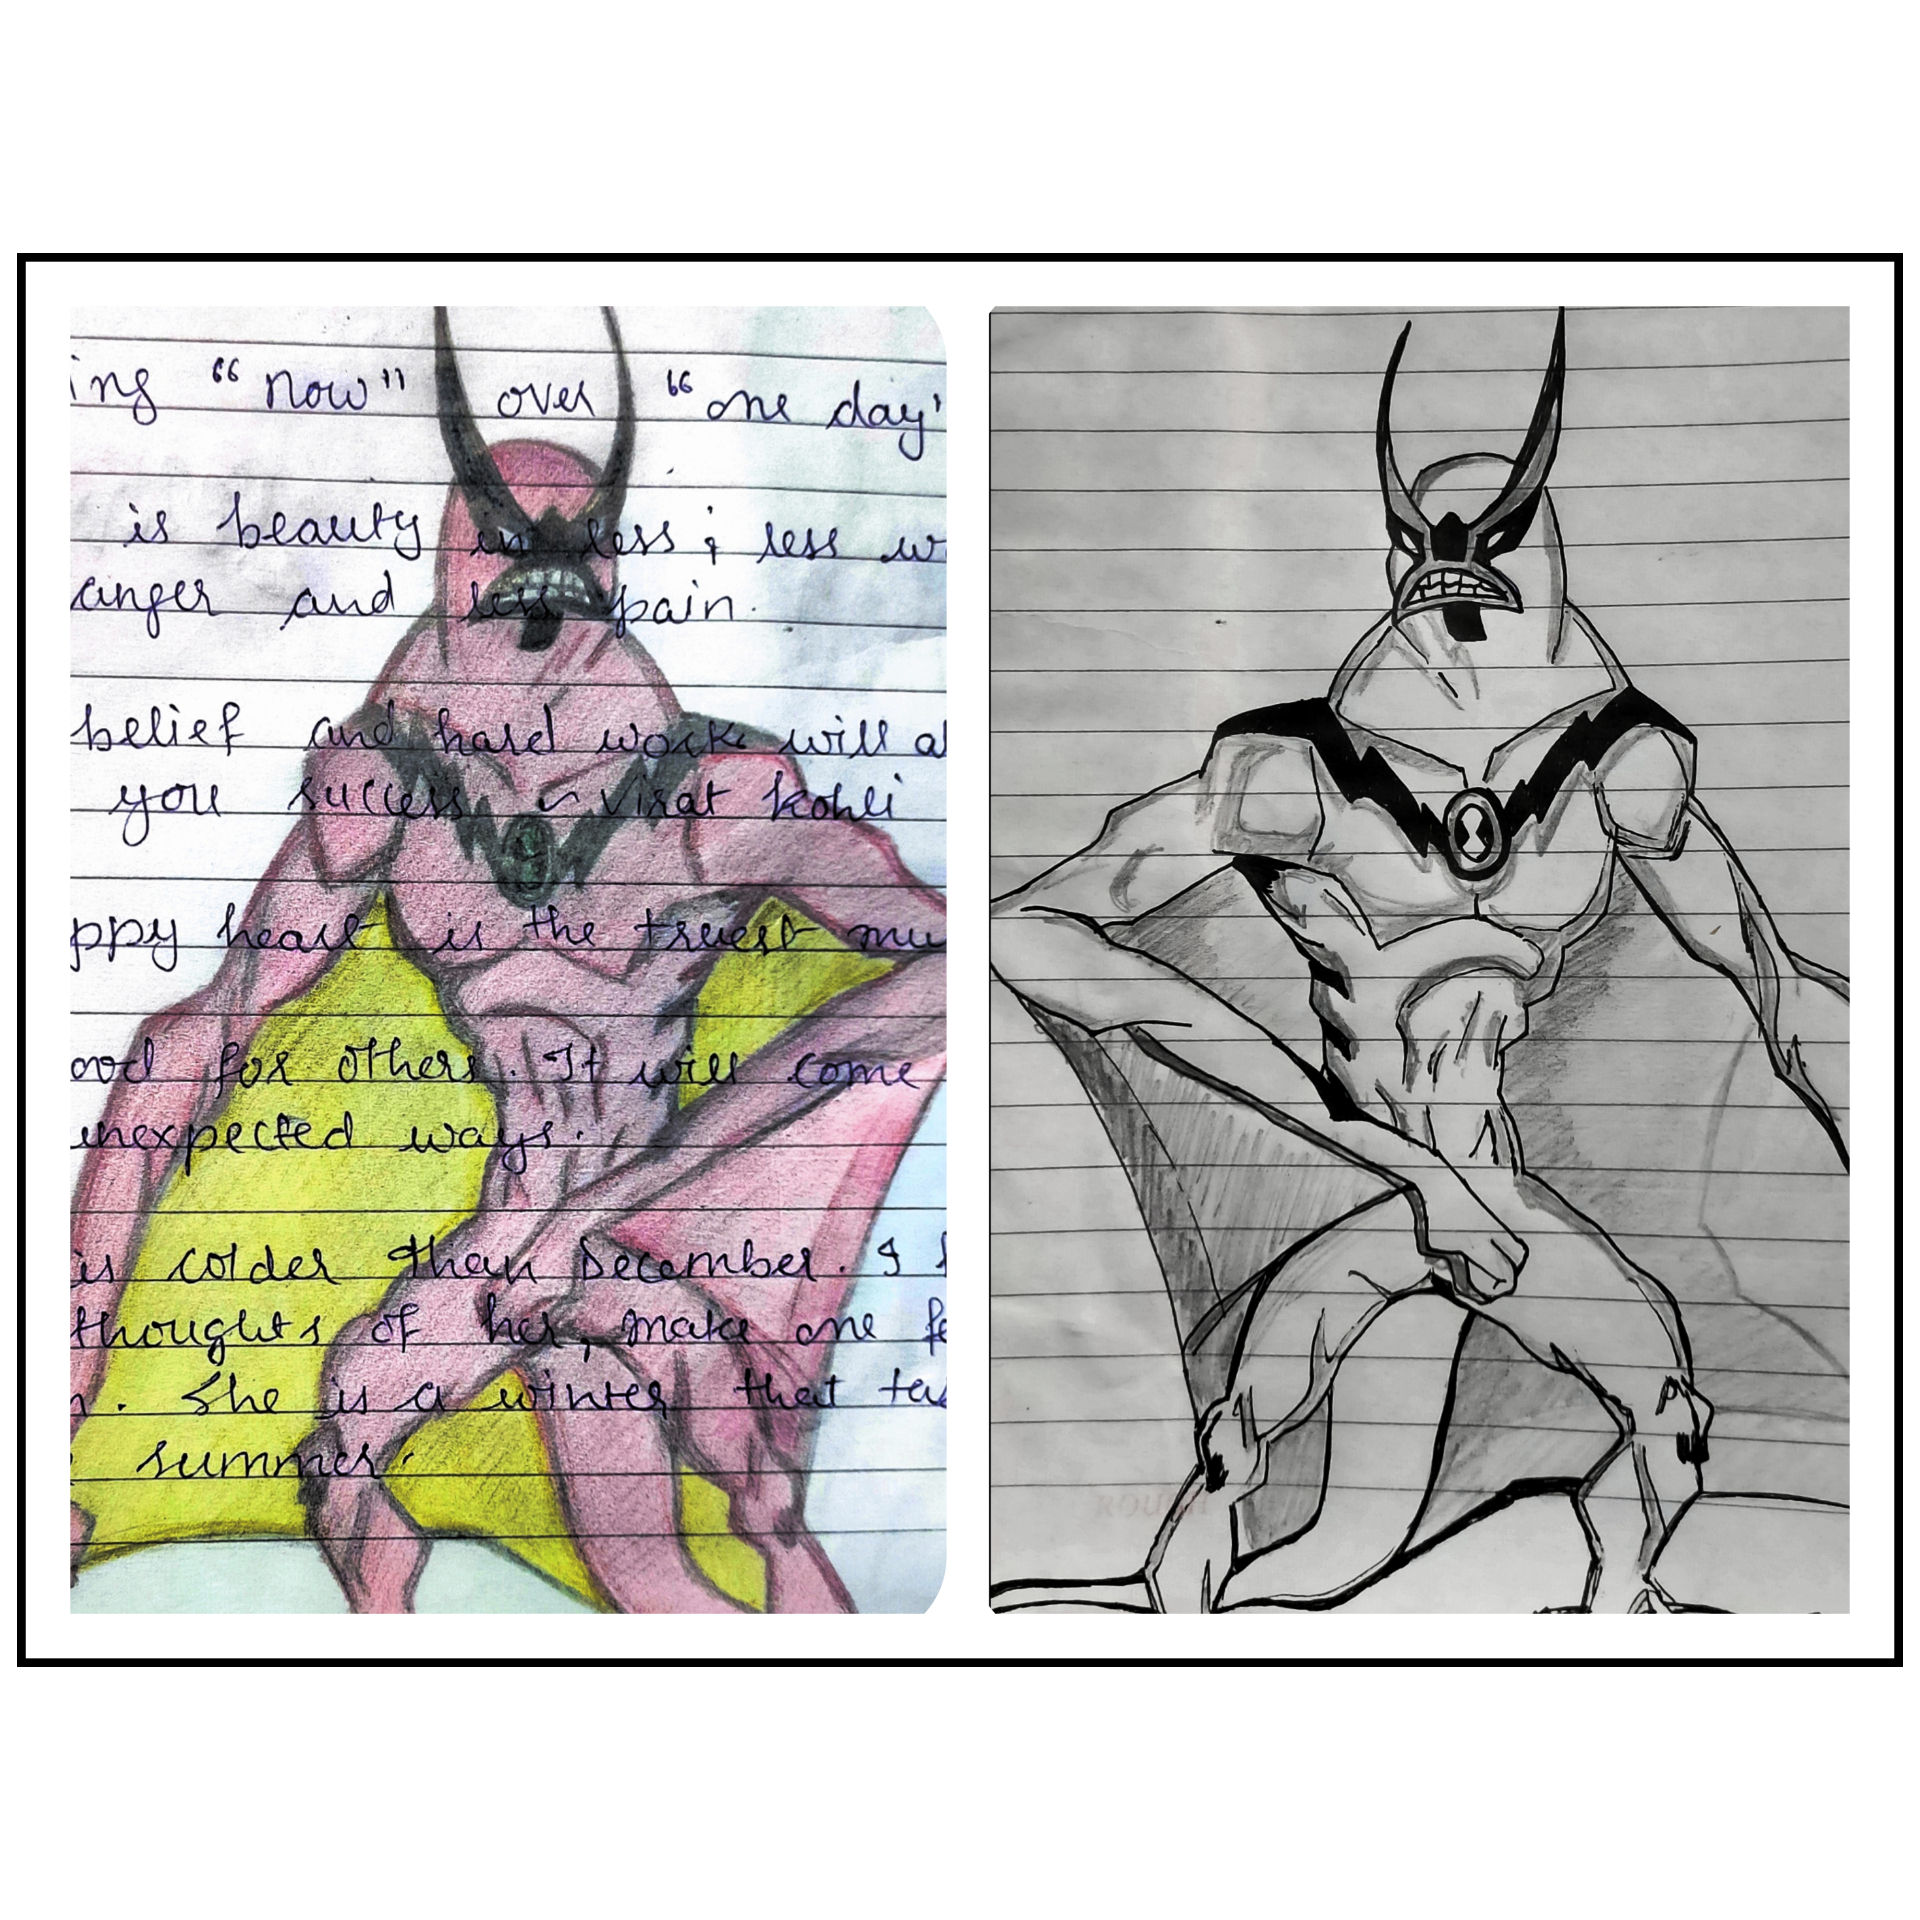 ing "now" over "one day"
is beauty in less ; less w
anger and less pain.
belief and hard work will al
you success ~ Virat Kohli
ppy heart is the truest mu
ood for others. It will come
unexpected ways.
is colder than December. I
thoughts of her, make one fe
n. She is a winter that ta
summer.
ROUGH